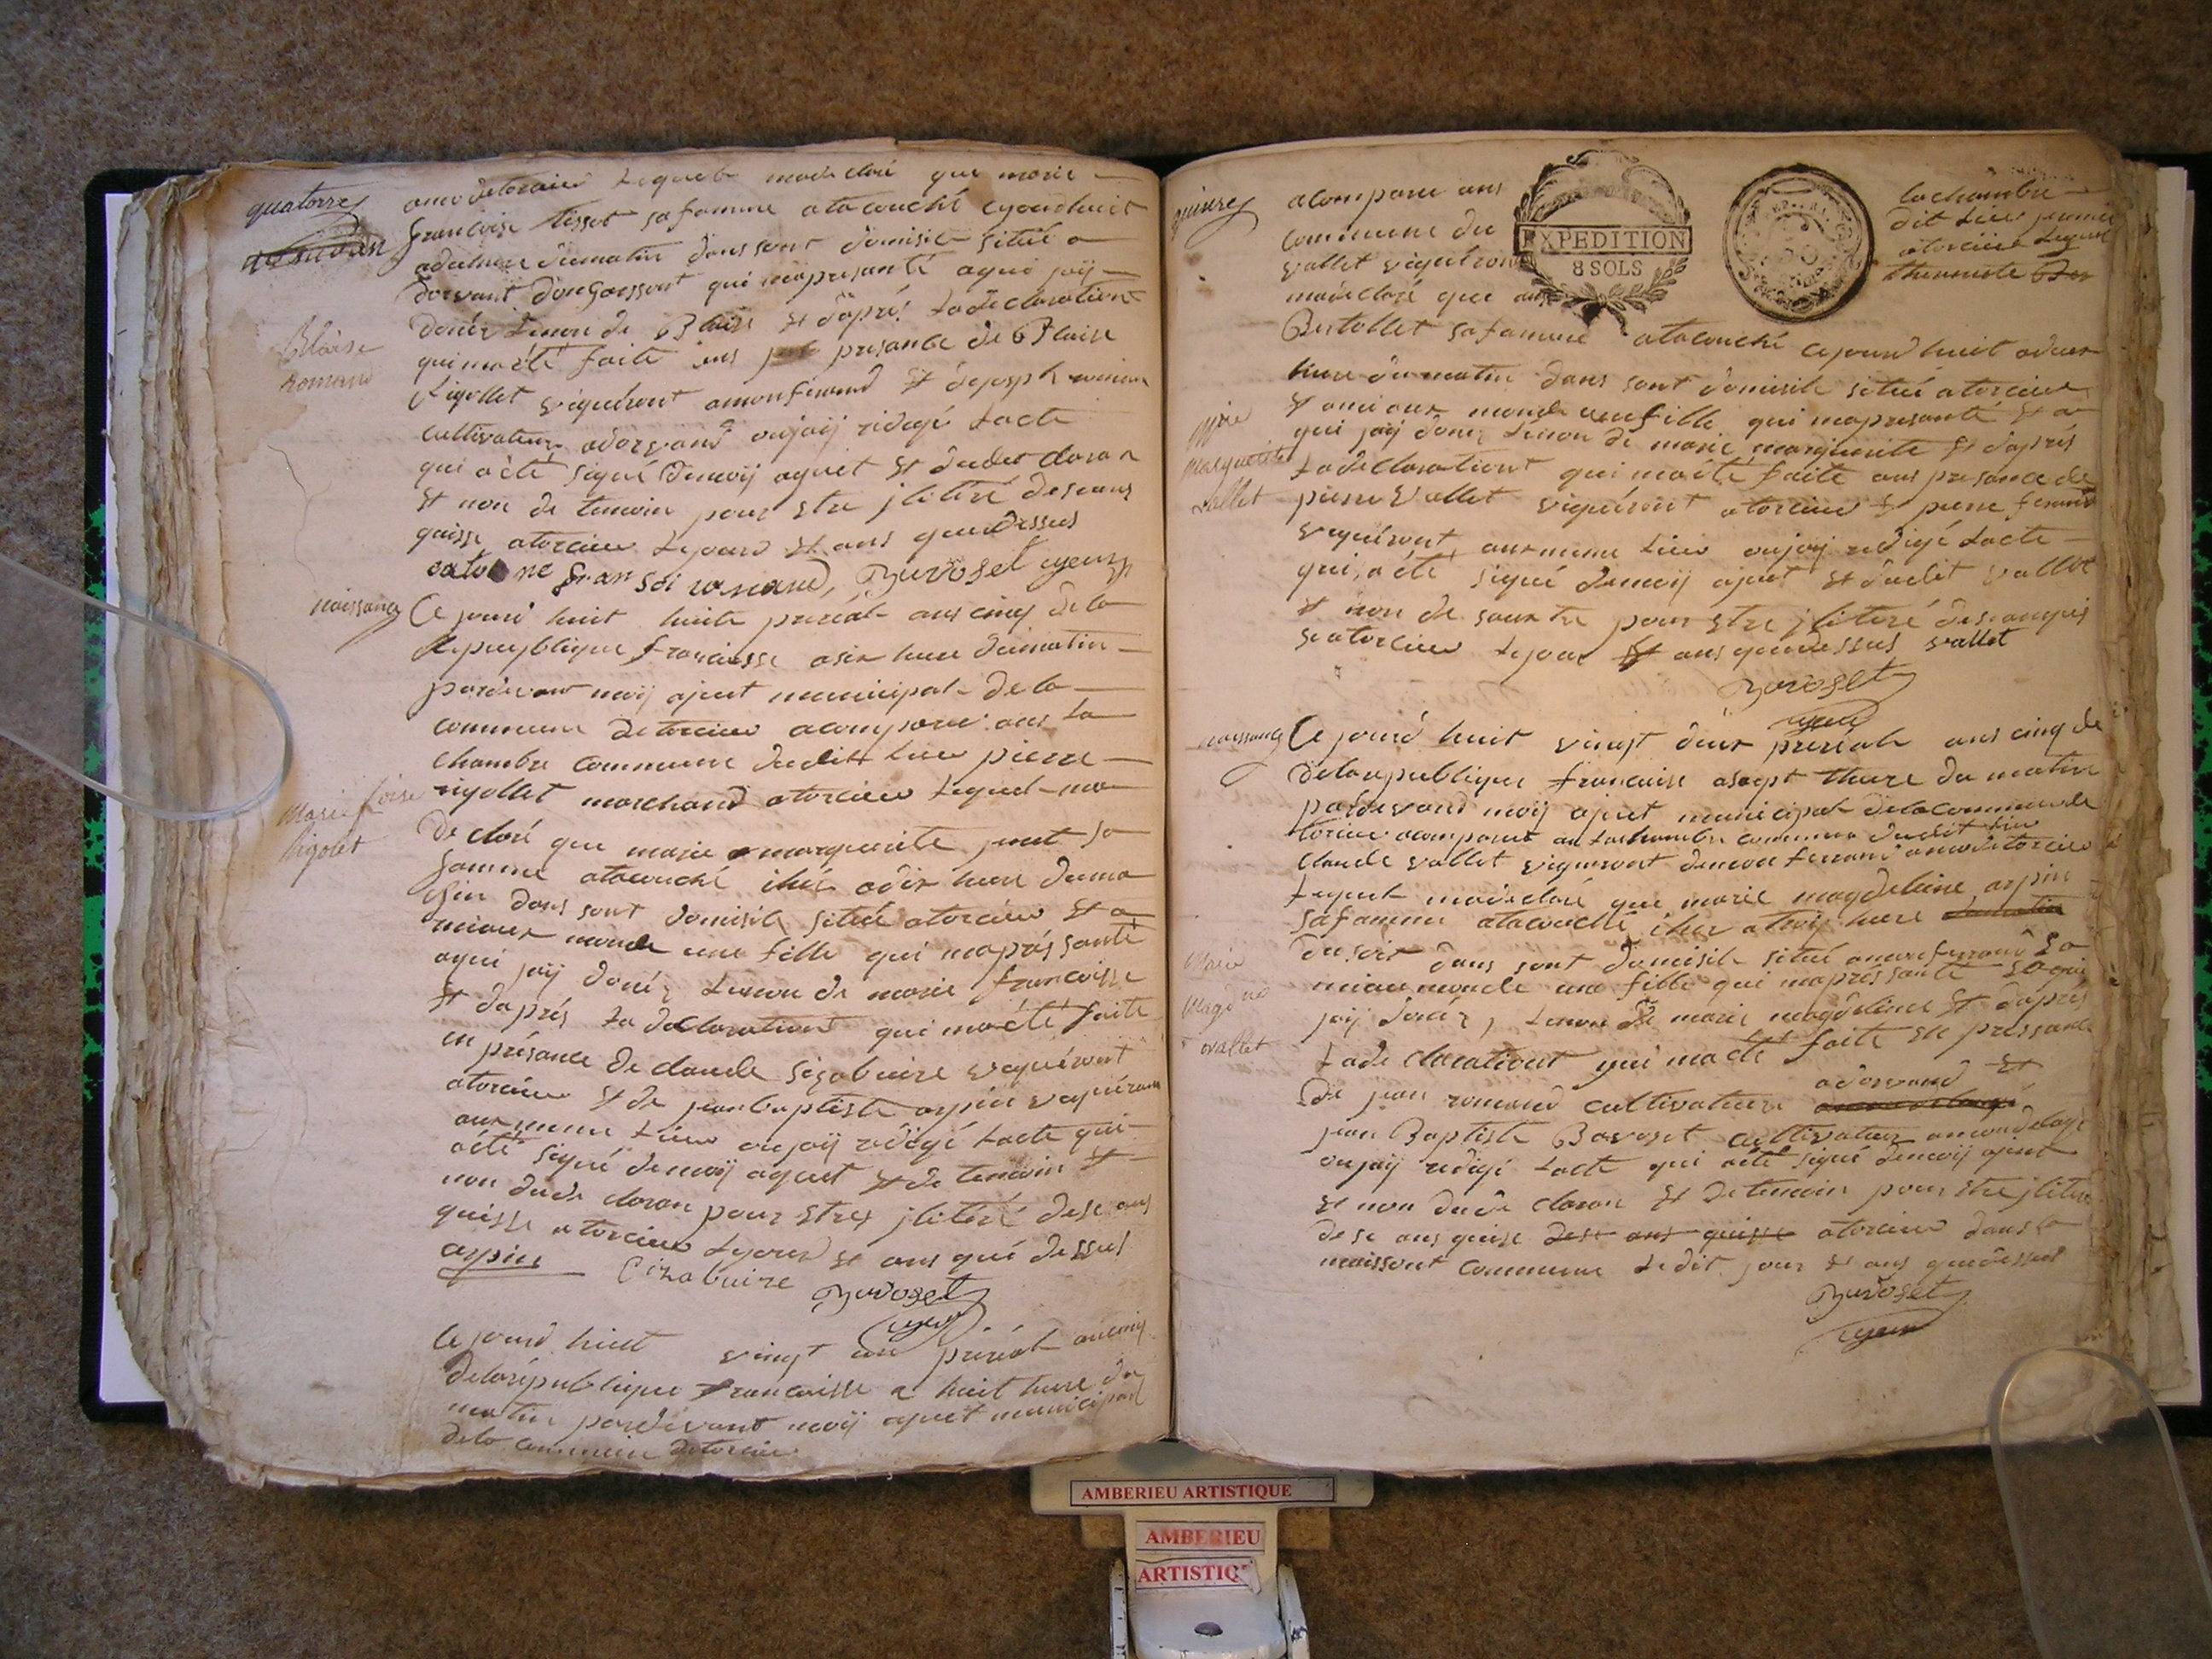 quatorze
amodetorcieu lequel madeclaré que marie
francoise tissot safamme atacouché cejourdhuit
adeuheure dumatin dans sont domisile situé a
dorvant dongarssont qui mapresanté aqui jaÿ
donéz lenon de Blaise et daprés ladeclarationt
quimaèté faite ans presance de Blaise
rigollet vigniéront amonferand et dejosph romian
cultivateur adorvand oujaÿ redigé lacte
qui aèté signé demoÿ ageut et dudeclaran
et non de temoin pour etre jlitéré deseans
quisse atorcieu lejourd et ans quedessus
fransoi romand, Buvoset
Blaise
Romand
naissance
Ce jourd huit huite preréal ans cinq dela
Republique francaisse asix heure dumatin
pardevant moÿ ajeut municipal dela
commune detorcieu acomparu ans la
chambre commune dudit lieu pierre
rigollet marchand atorcieu lequel ma
declaré que marie marguerite jant sa
famme atacouché ihér adix heure duma
tin dans sont domisile situé atorcieu et a
miaux monde une fille qui maprés santé
aqui jaÿ donéz lenon de marie francoisse
et daprés la declarationt qui maèté faite
en présance de claude sizabuire vaguéront
atorcieu et de jeanbaptiste arpin vaguéront
aux meme lieu oujaÿ redigé lacte qui
aété signé demoÿ ageut et de temoin et
non dude claran pour etres jlitéré dese ans
quisse atorcieu lejourd et ans qué dessus
arpin Cizabuire Buvoset
Marie f.çoise
Rigolet
Ce jourd huit vingt un préréal ancinq
delarépublique francaisse a huit heure du
matin pardevant moÿ ageut municipal
dela commune detorcieu
quinze
acomparu ans lachambre
commune du dit lieu pierre
vallet vigniéron atorcieu lequel
madeclaré que
EXPEDITION
8 SOLS
Bertollet safamme atacouché cejourdhuit adeux
heure dumatin dans sont domisile situé atorcieu
et amiaux monde unefille qui maprésanté et a
qui jaÿ donez lenon de marie marguerite et daprés
ladeclarationt qui maèté faite ans presance de
pierre vallet vigniéront atorcieu et pierre ferrand
vigniéront aux meme lieu oujaÿ redigé lacte
qui, aété signé demoÿ ajeut et dudit vallet
et non de pour etre jlitéré deseanquis
se atorcieu lejour et ans quedessus vallet
Buvoset
Mrie
Marguerite
vallet
naissance
Ce jourd huit vingt deux preréale ans cinq de
delarepublique francaise asept theure du matin
pardevand moÿ ajeut municipal delacommunede
torcieu acomparut an lachambre commune dudit lieu
claude vallet vigneront demont ferrand amodetorcieu
lequel madéclaré que marie magdeleine arpin
safamme atacouché iher atroij heure dumatin
dusoir dans sont domisile situé amonferrand Ea
miaumonde une fille qui maprés santé Eaqui
jaÿ donéz, lenon de marie magdeleine et daprés
lade clarationt qui maèté faite en pressance
De jean romand cultivateur adorvand et
jean Baptiste Bovoset cultivateur
oujaÿ redigé lacte qui aèté signé demoÿ ajeut
et non dude claran et de temoin pour etre jlitere
dese ans quise dese ans quisse atorcieu dans la
maissont commune ledit jour et ans quedessus
Buvoset
Marie
Magd.ne
vallet
AMBERIEU ARTISTIQUE
AMBERIEU
ARTISTIQ